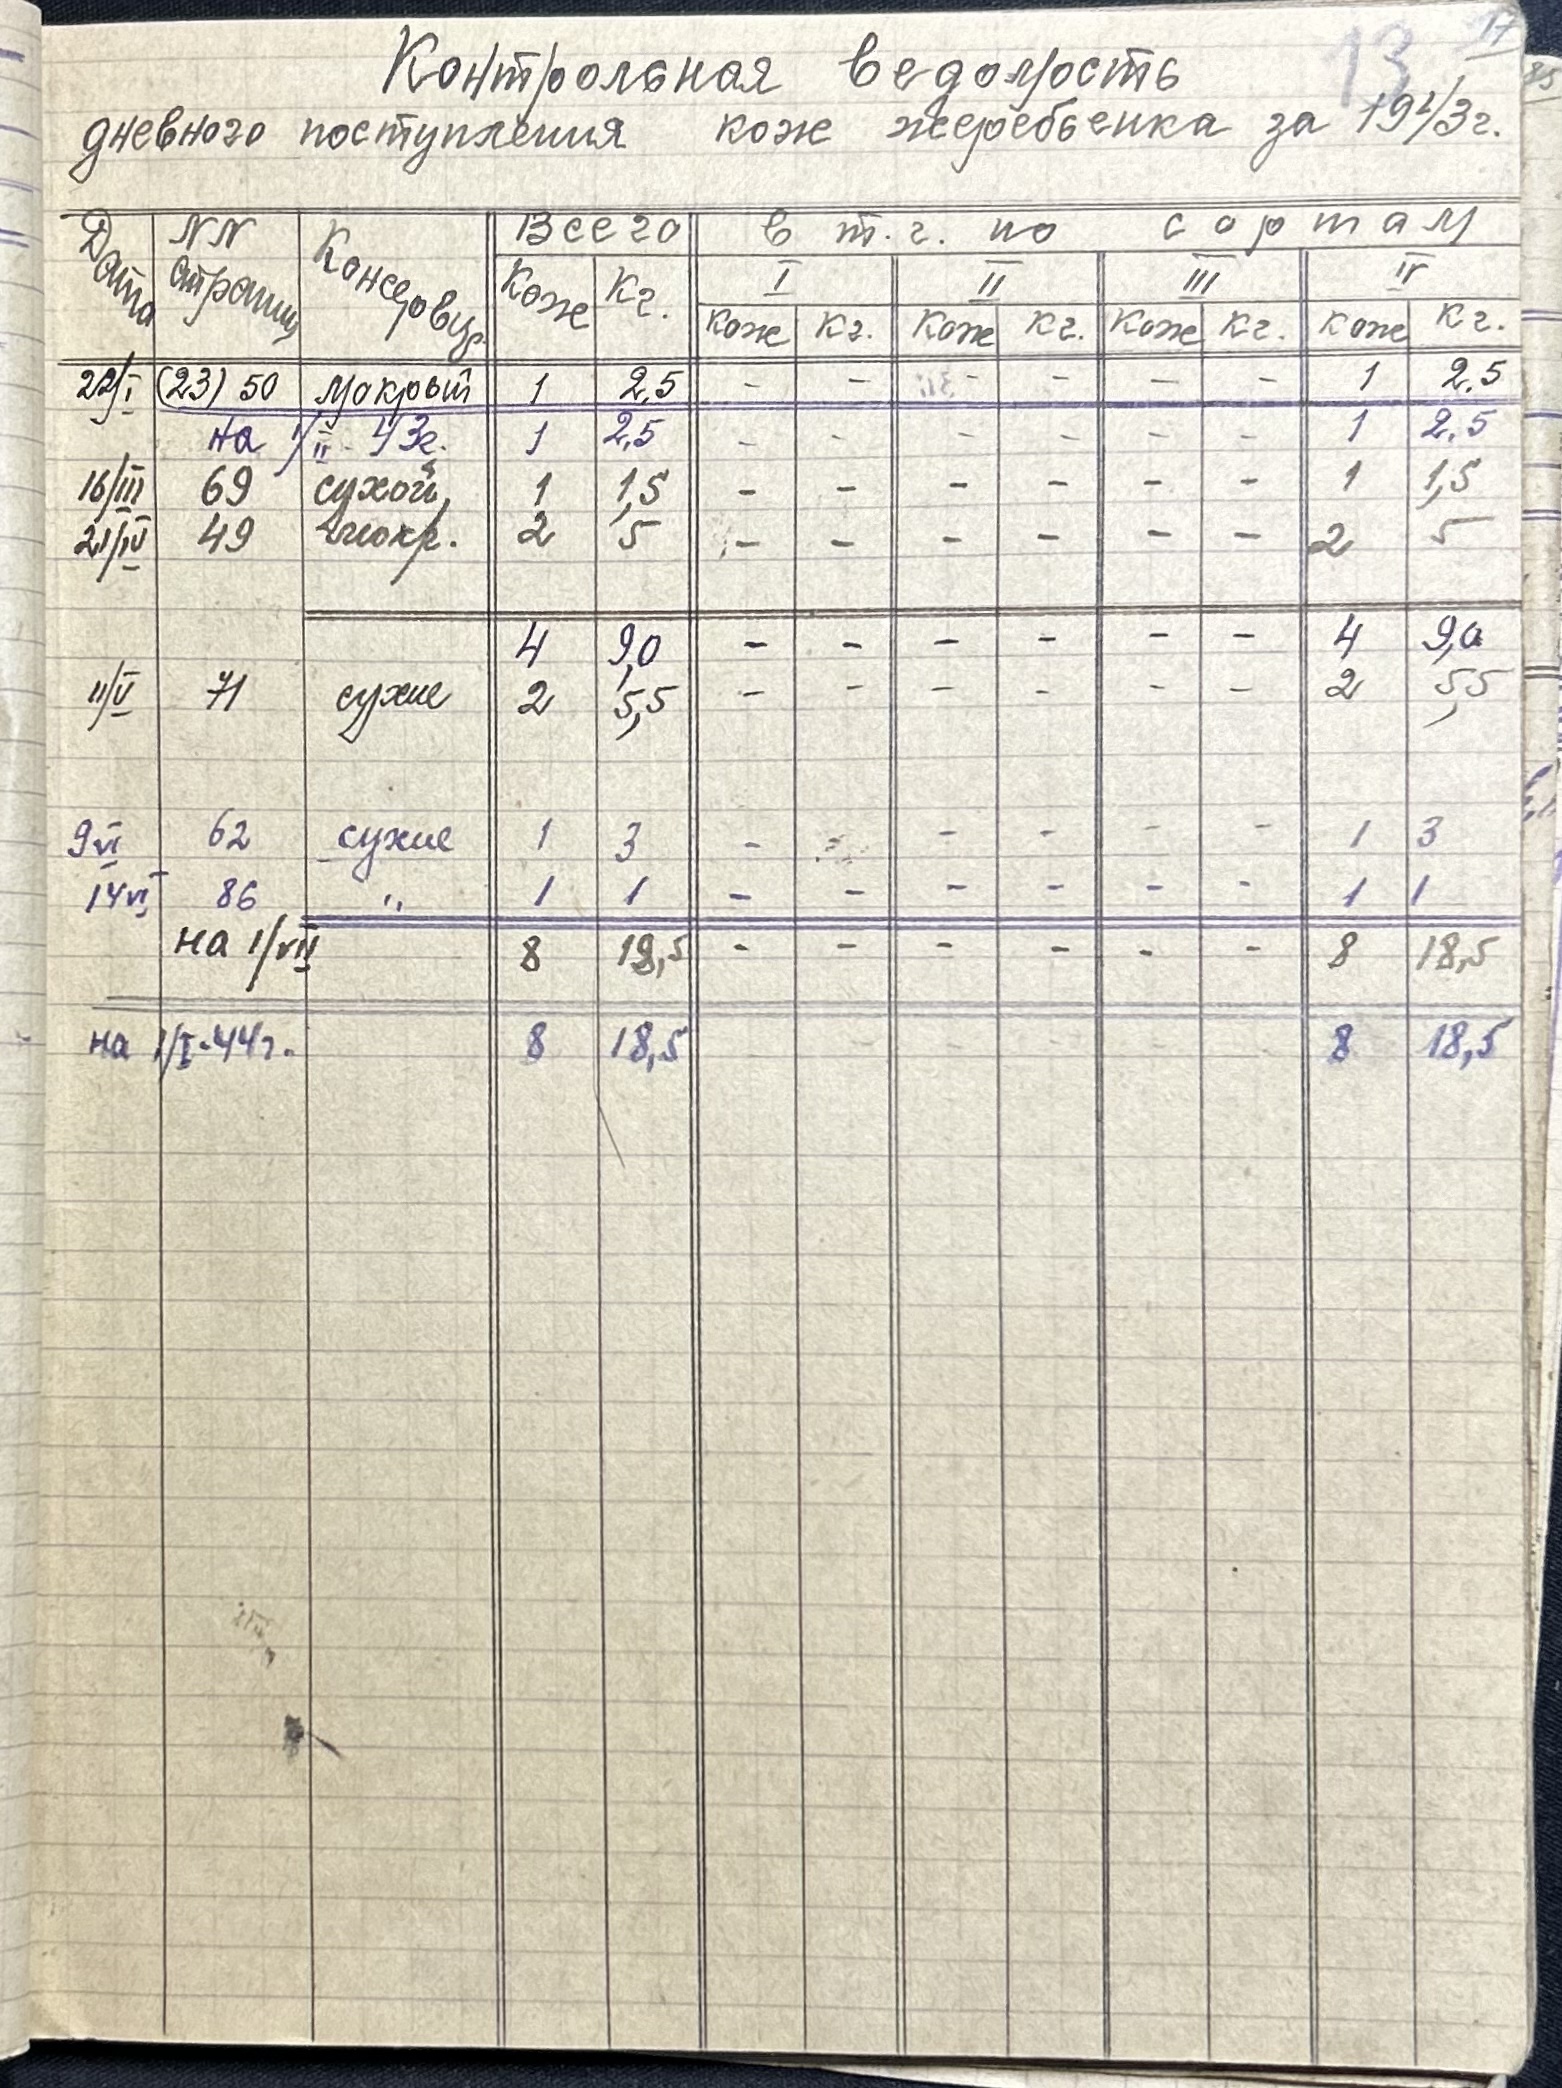 13 17
Контрольная ведомость
дневного поступления кож жеребьенка за 1943г.
Дата NN страниц Консервир. Всего в т.г. по сортам
I II III IV
Кож Кг. кож кг. кож кг. кож кг. кож кг.
22/I (23) 50 мокрый 1 2,5 - - - - - - 1 2,5
на 1/II - 43г. 1 2,5 - - - - - - 1 2,5
16/III 69 сухой 1 1,5 - - - - - - 1 1,5
21/IV 49 мокр. 2 5 - - - - - - 2 5
4 9,0 - - - - - - 4 9,0
11/V 71 сухие 2 5,5 - - - - - - 2 5,5
9 VI 62 сухие 1 3 - - - - - 1 3
14 VI 86 " 1 1 - - - - - - 1 1
на 1/VII 8 18,5 - - - - - - 8 18,5
на 1/I-44г. 8 18,5 8 18,5